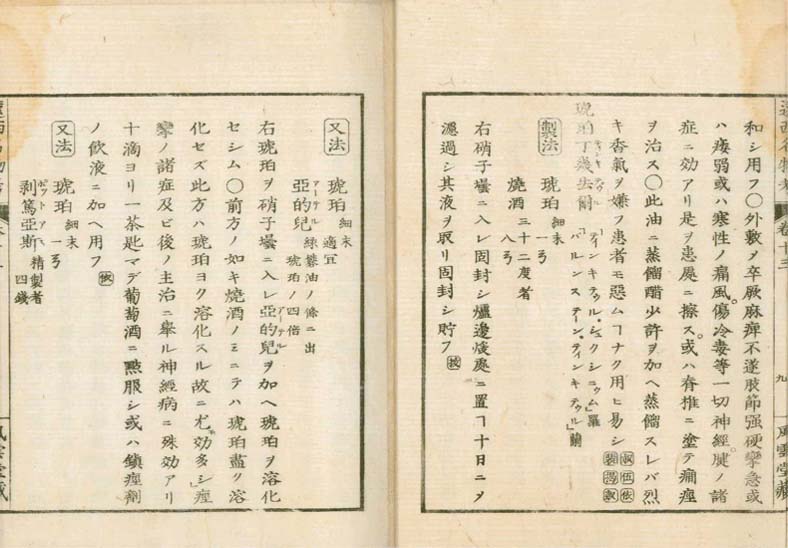 和シ用フ〇外敷ヲ卒厥麻痺不遂肢節强硬攣急或
ハ痿弱或ハ寒性ノ痛風、傷冷毒等一切神經腱ノ諸
症ニ効アリ是ヲ患處ニ擦ス、或ハ脊椎ニ塗テ癇痙
ヲ治ス〇此油ニ蒸餾醋少許ヲ加ヘ蒸餾スレバ烈
キ香氣ヲ嫌フ患者モ惡ムヿナク用ヒ易シ
琥珀丁幾去爾 「ティンキテゥル・シュクシニゥム」羅 「バルンステーン・ティンキテゥル」蘭
製法 琥珀 細末 一弓
燒酒 三十二度者 八弓
右硝子壜ニ入レ固封シ爐邊煖處ニ置ヿ十日ニヲ
濾過シ其液ヲ取リ固封シ貯フ 扶
九
風雲堂藏
又法 琥珀 細末 適宜
亞的兒 アーテル 綠礬油ノ條ニ出 琥珀ノ四倍
右琥珀ヲ硝子壜ニ入レ亞的兒ヲ加ヘ琥珀ヲ溶化
セシム〇前方ノ如キ燒酒ノミニテハ琥珀盡ク溶
化セズ此方ハ琥珀ヨク溶化スル故ニ尤効多シ、痙
攣ノ諸症及ビ後ノ主治ニ擧ル神經病ニ殊効アリ
十滴ヨリ一茶匙マデ葡萄酒ニ㸃服シ或ハ鎮痙劑
ノ飲液ニ加ヘ用フ 扶
又法 琥珀 細末 一弓
剥篤亞斯 ポットアス 精製者 四錢
風雲堂藏